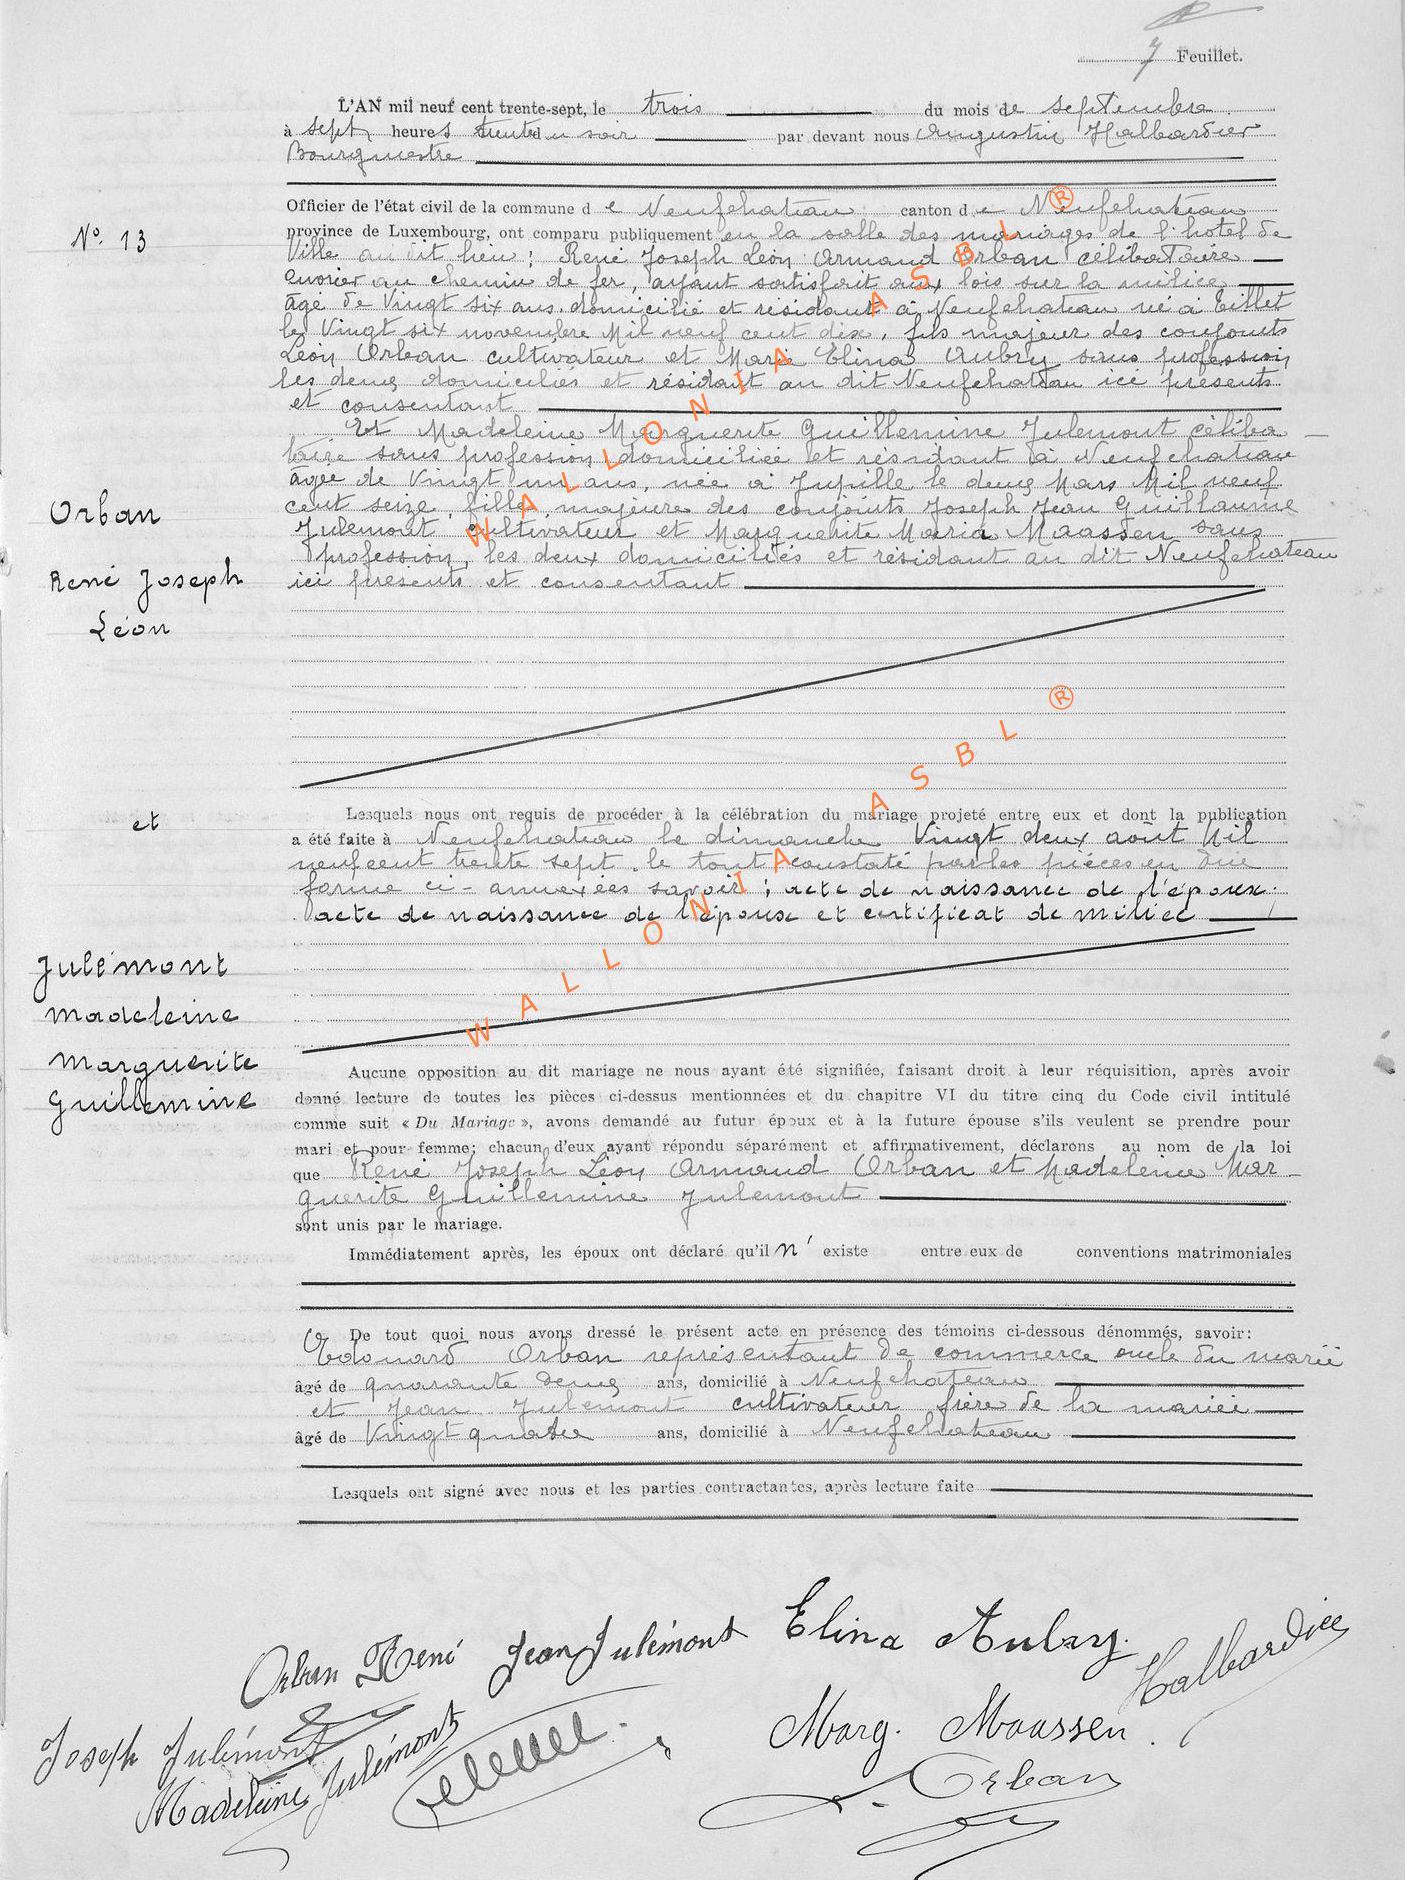 7 Feuillet.
L'AN mil neuf cent trente-sept, le trois du mois de septembre
à sept heures trente du soir par devant nous Augustin Halbardier
Bourgmestre
Officier de l'état civil de la commune de Neufchateau canton de Neufchateau
N° 13
province de Luxembourg, ont comparu publiquement en la salle des mariages de l'hotel de
Ville au dit lieu : René Joseph Léon Armand Orban célibataire
ouvrier au chemin de fer, ayant satisfait aux lois sur la milice
âgé de Vingt six ans domicilié et résidant à Neufchateau né à Tillet
le Vingt six novembre Mil neuf cent dix, fils majeur des conjoints
Léon Orban cultivateur et Marie Elina Aubry sans profession
les deux domiciliés et résidant au dit Neufchateau ici présents
et consentant
Et Madeleine Marguerite Guillemine Julemont céliba
taire sans profession domiciliée et résidant à Neufchateau
âgée de Vingt un ans, née à Jupille le deux Mars Mil neuf
cent seize, fille majeure des conjoints Joseph Jean Guillaume
Julemont cultivateur et Marguerite Maria Maassen sans
profession, les deux domiciliés et résidant au dit Neufchateau
ici présents et consentant
Orban
René Joseph
Léon
et
Julémont
Madeleine
Marguerite
Guillemine
Lesquels nous ont requis de procéder à la célébration du mariage projeté entre eux et dont la publication
a été faite à Neufchateau le dimanche Vingt deux août Mil
neuf cent trente sept. le tout constaté par les pièces en due
forme ci-annexées savoir : acte de naissance de l'époux;
acte de naissance de l'épouse et certificat de milice
Aucune opposition au dit mariage ne nous ayant été signifiée, faisant droit à leur réquisition, après avoir
donné lecture de toutes les pièces ci-dessus mentionnées et du chapitre VI du titre cinq du Code civil intitulé
comme suit « Du Mariage », avons demandé au futur époux et à la future épouse s'ils veulent se prendre pour
mari et pour femme; chacun d'eux ayant répondu séparément et affirmativement, déclarons au nom de la loi
que René Joseph Léon Armand Orban et Madeleine Mar-
guerite Guillemine Julemont
sont unis par le mariage.
Immédiatement après, les époux ont déclaré qu'il n' existe entre eux de conventions matrimoniales
De tout quoi nous avons dressé le présent acte en présence des témoins ci-dessous dénommés, savoir:
Edouard Orban représentant de commerce oncle du marié
âgé de quarante deux ans, domicilié à Neufchateau
et Jean Julemont cultivateur frère de la mariée
âgé de Vingt quatre ans, domicilié à Neufchateau
Lesquels ont signé avec nous et les parties contractantes, après lecture faite
Orban René Jean Julémont Elina Aubry. Halbardier
Joseph Julémont Marg. Maassen.
Madeleine Julémont
Orban
WALLONIA ASBL ®
WALLONIA ASBL ®